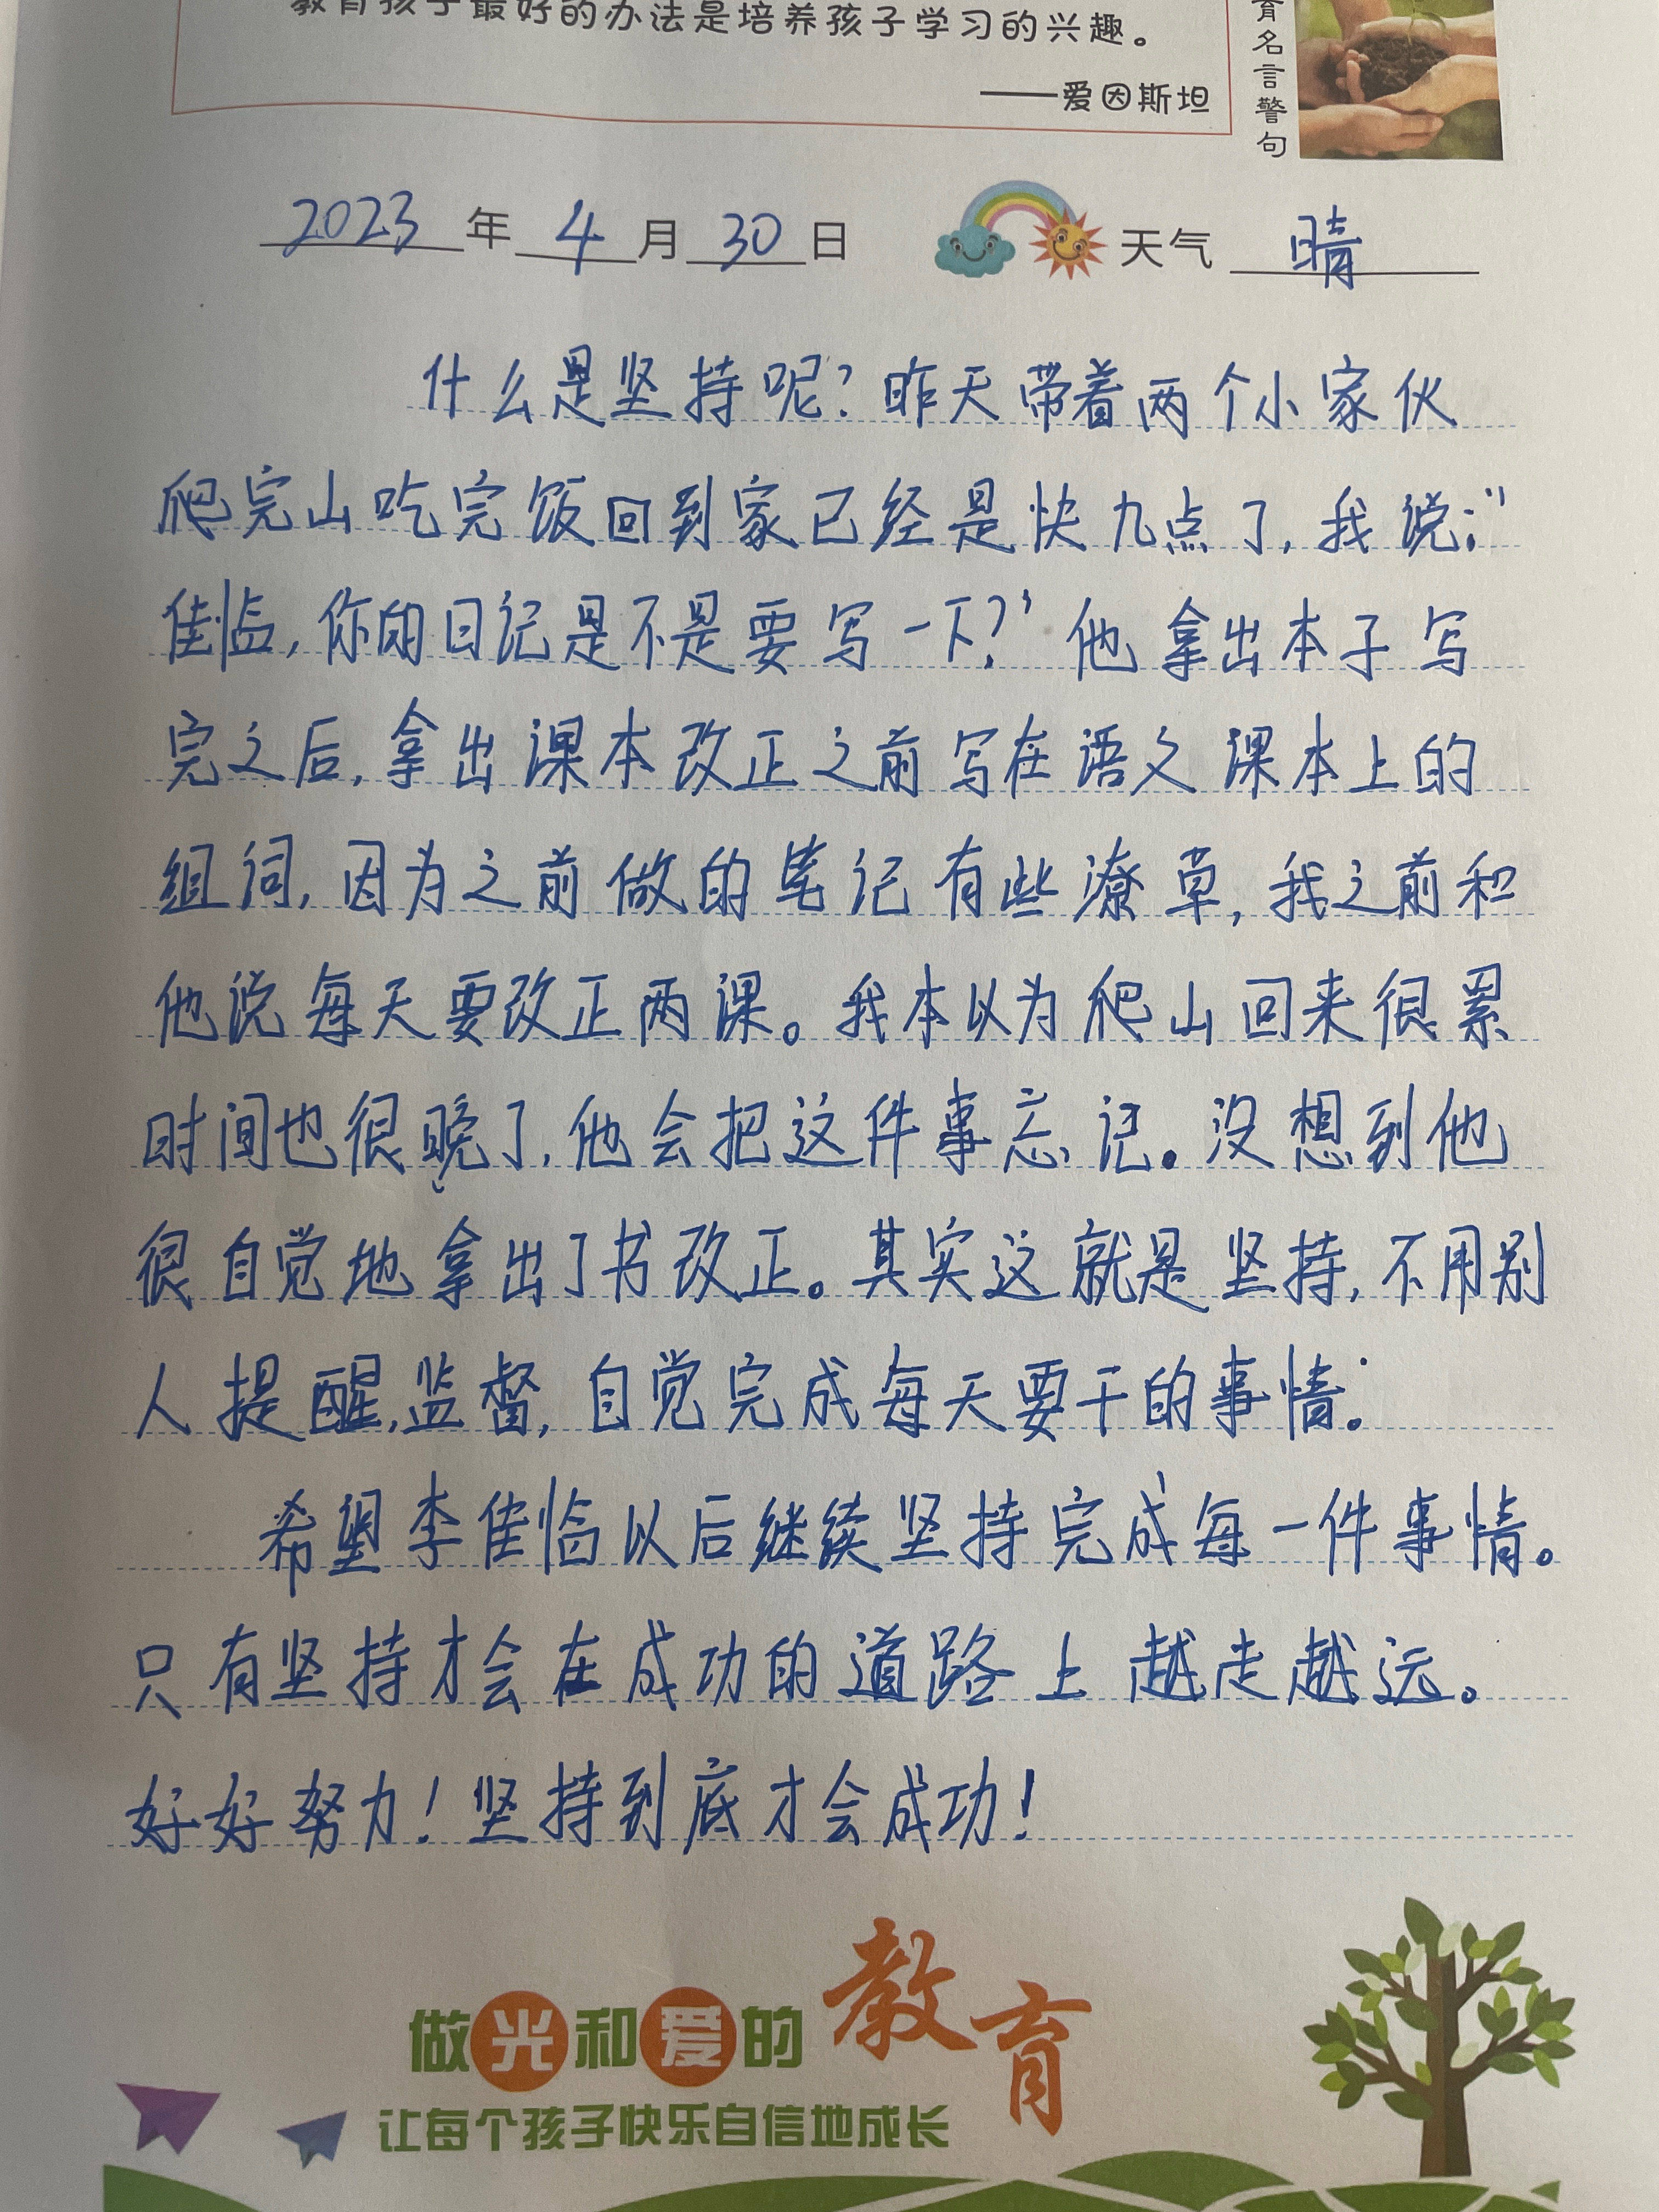 教育孩子最好的办法是培养孩子学习的兴趣。
——爱因斯坦
育名言警句
2023年4月30日 天气 晴
什么是坚持呢?昨天带着两个小家伙
爬完山吃完饭回到家已经是快九点了,我说:"
佳临,你的日记是不是要写一下?"他拿出本子写
完之后,拿出课本改正之前写在语文课本上的
组词,因为之前做的笔记有些潦草,我之前和
他说每天要改正两课。我本以为爬山回来很累
时间也很晚了,他会把这件事忘记。没想到他
很自觉地拿出了书改正。其实这就是坚持,不用别
人提醒,监督,自觉完成每天要干的事情。
希望李佳临以后继续坚持完成每一件事情。
只有坚持才会在成功的道路上越走越远。
好好努力!坚持到底才会成功!
做光和爱的教育
让每个孩子快乐自信地成长